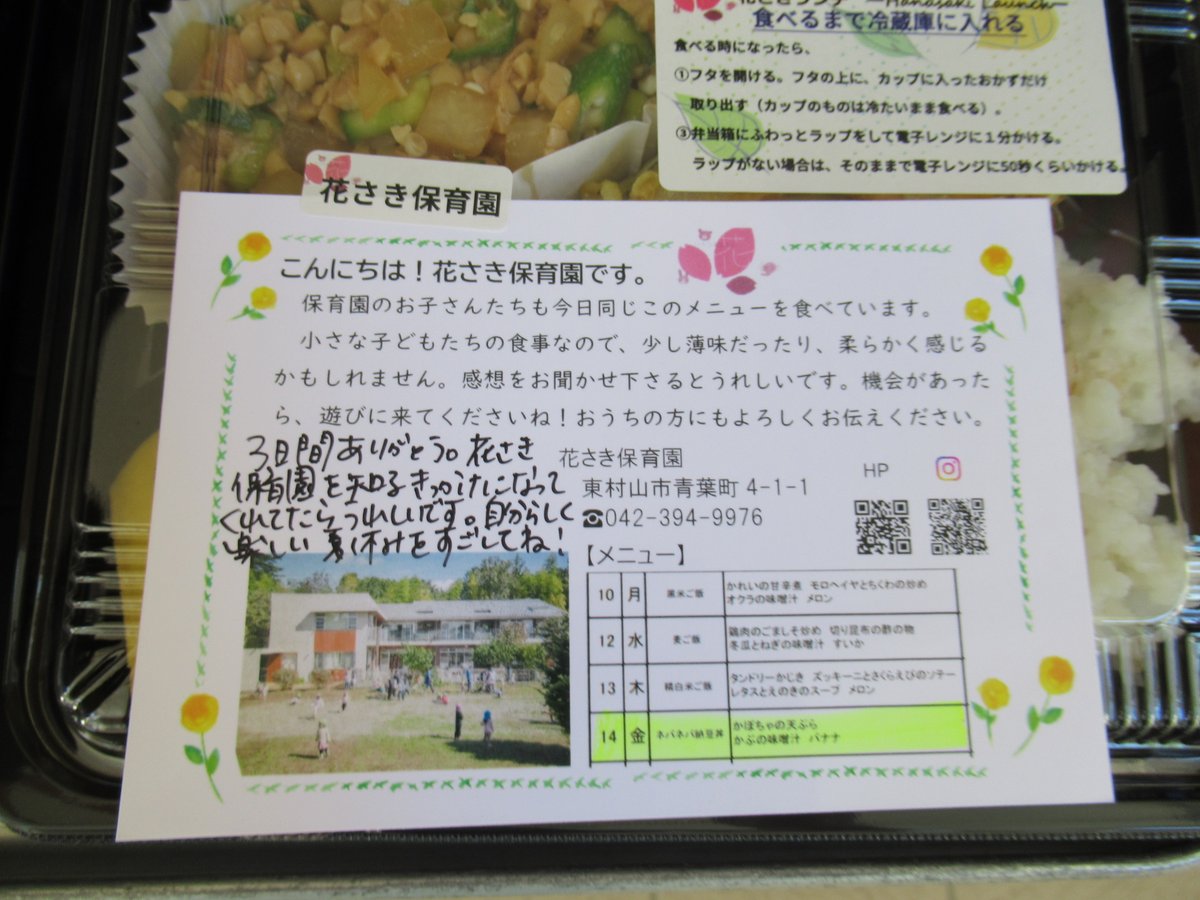 花さきランチ ーHanasaki Launchー
食べるまで冷蔵庫に入れる
食べる時になったら、
①フタを開ける。フタの上に、カップに入ったおかずだけ
取り出す（カップのものは冷たいまま食べる）。
③弁当箱にふわっとラップをして電子レンジに1分かける。
ラップがない場合は、そのままで電子レンジに50秒くらいかける。
花さき保育園
こんにちは！花さき保育園です。
保育園のお子さんたちも今日同じこのメニューを食べています。
小さな子どもたちの食事なので、少し薄味だったり、柔らかく感じる
かもしれません。感想をお聞かせ下さるとうれしいです。機会があった
ら、遊びに来てくださいね！おうちの方にもよろしくお伝えください。
3日間ありがとう。花さき
保育園を知るきっかけになって
くれてたらうれしいです。自分らしく
楽しい夏休みをすごしてね！
花さき保育園
東村山市青葉町 4-1-1
☎042-394-9976
HP
【メニュー】
10 月 黒米ご飯 かれいの甘辛煮 モロヘイヤとちくわの炒め
オクラの味噌汁 メロン
12 水 麦ご飯 鶏肉のごましそ炒め 切り昆布の酢の物
冬瓜とねぎの味噌汁 すいか
13 木 精白米ご飯 タンドリーかじき ズッキーニとさくらえびのソテー
レタスとえのきのスープ メロン
14 金 ネバネバ納豆丼 かぼちゃの天ぷら
かぶの味噌汁 バナナ